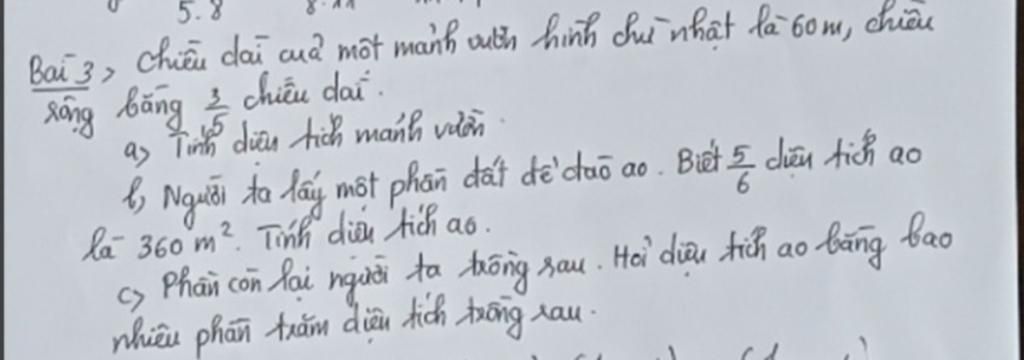 5.8 8.11
Bài 3> Chiều dài của một mảnh vườn hình chữ nhật là 60m, chiều
rộng bằng 3/5 chiều dài.
a> Tính diện tích mảnh vườn.
b, Người ta lấy một phần đất để đào ao. Biết 5/6 diện tích ao
là 360 m². Tính diện tích ao.
c> Phần còn lại người ta trồng rau. Hỏi diện tích ao bằng bao
nhiêu phần trăm diện tích trồng rau.